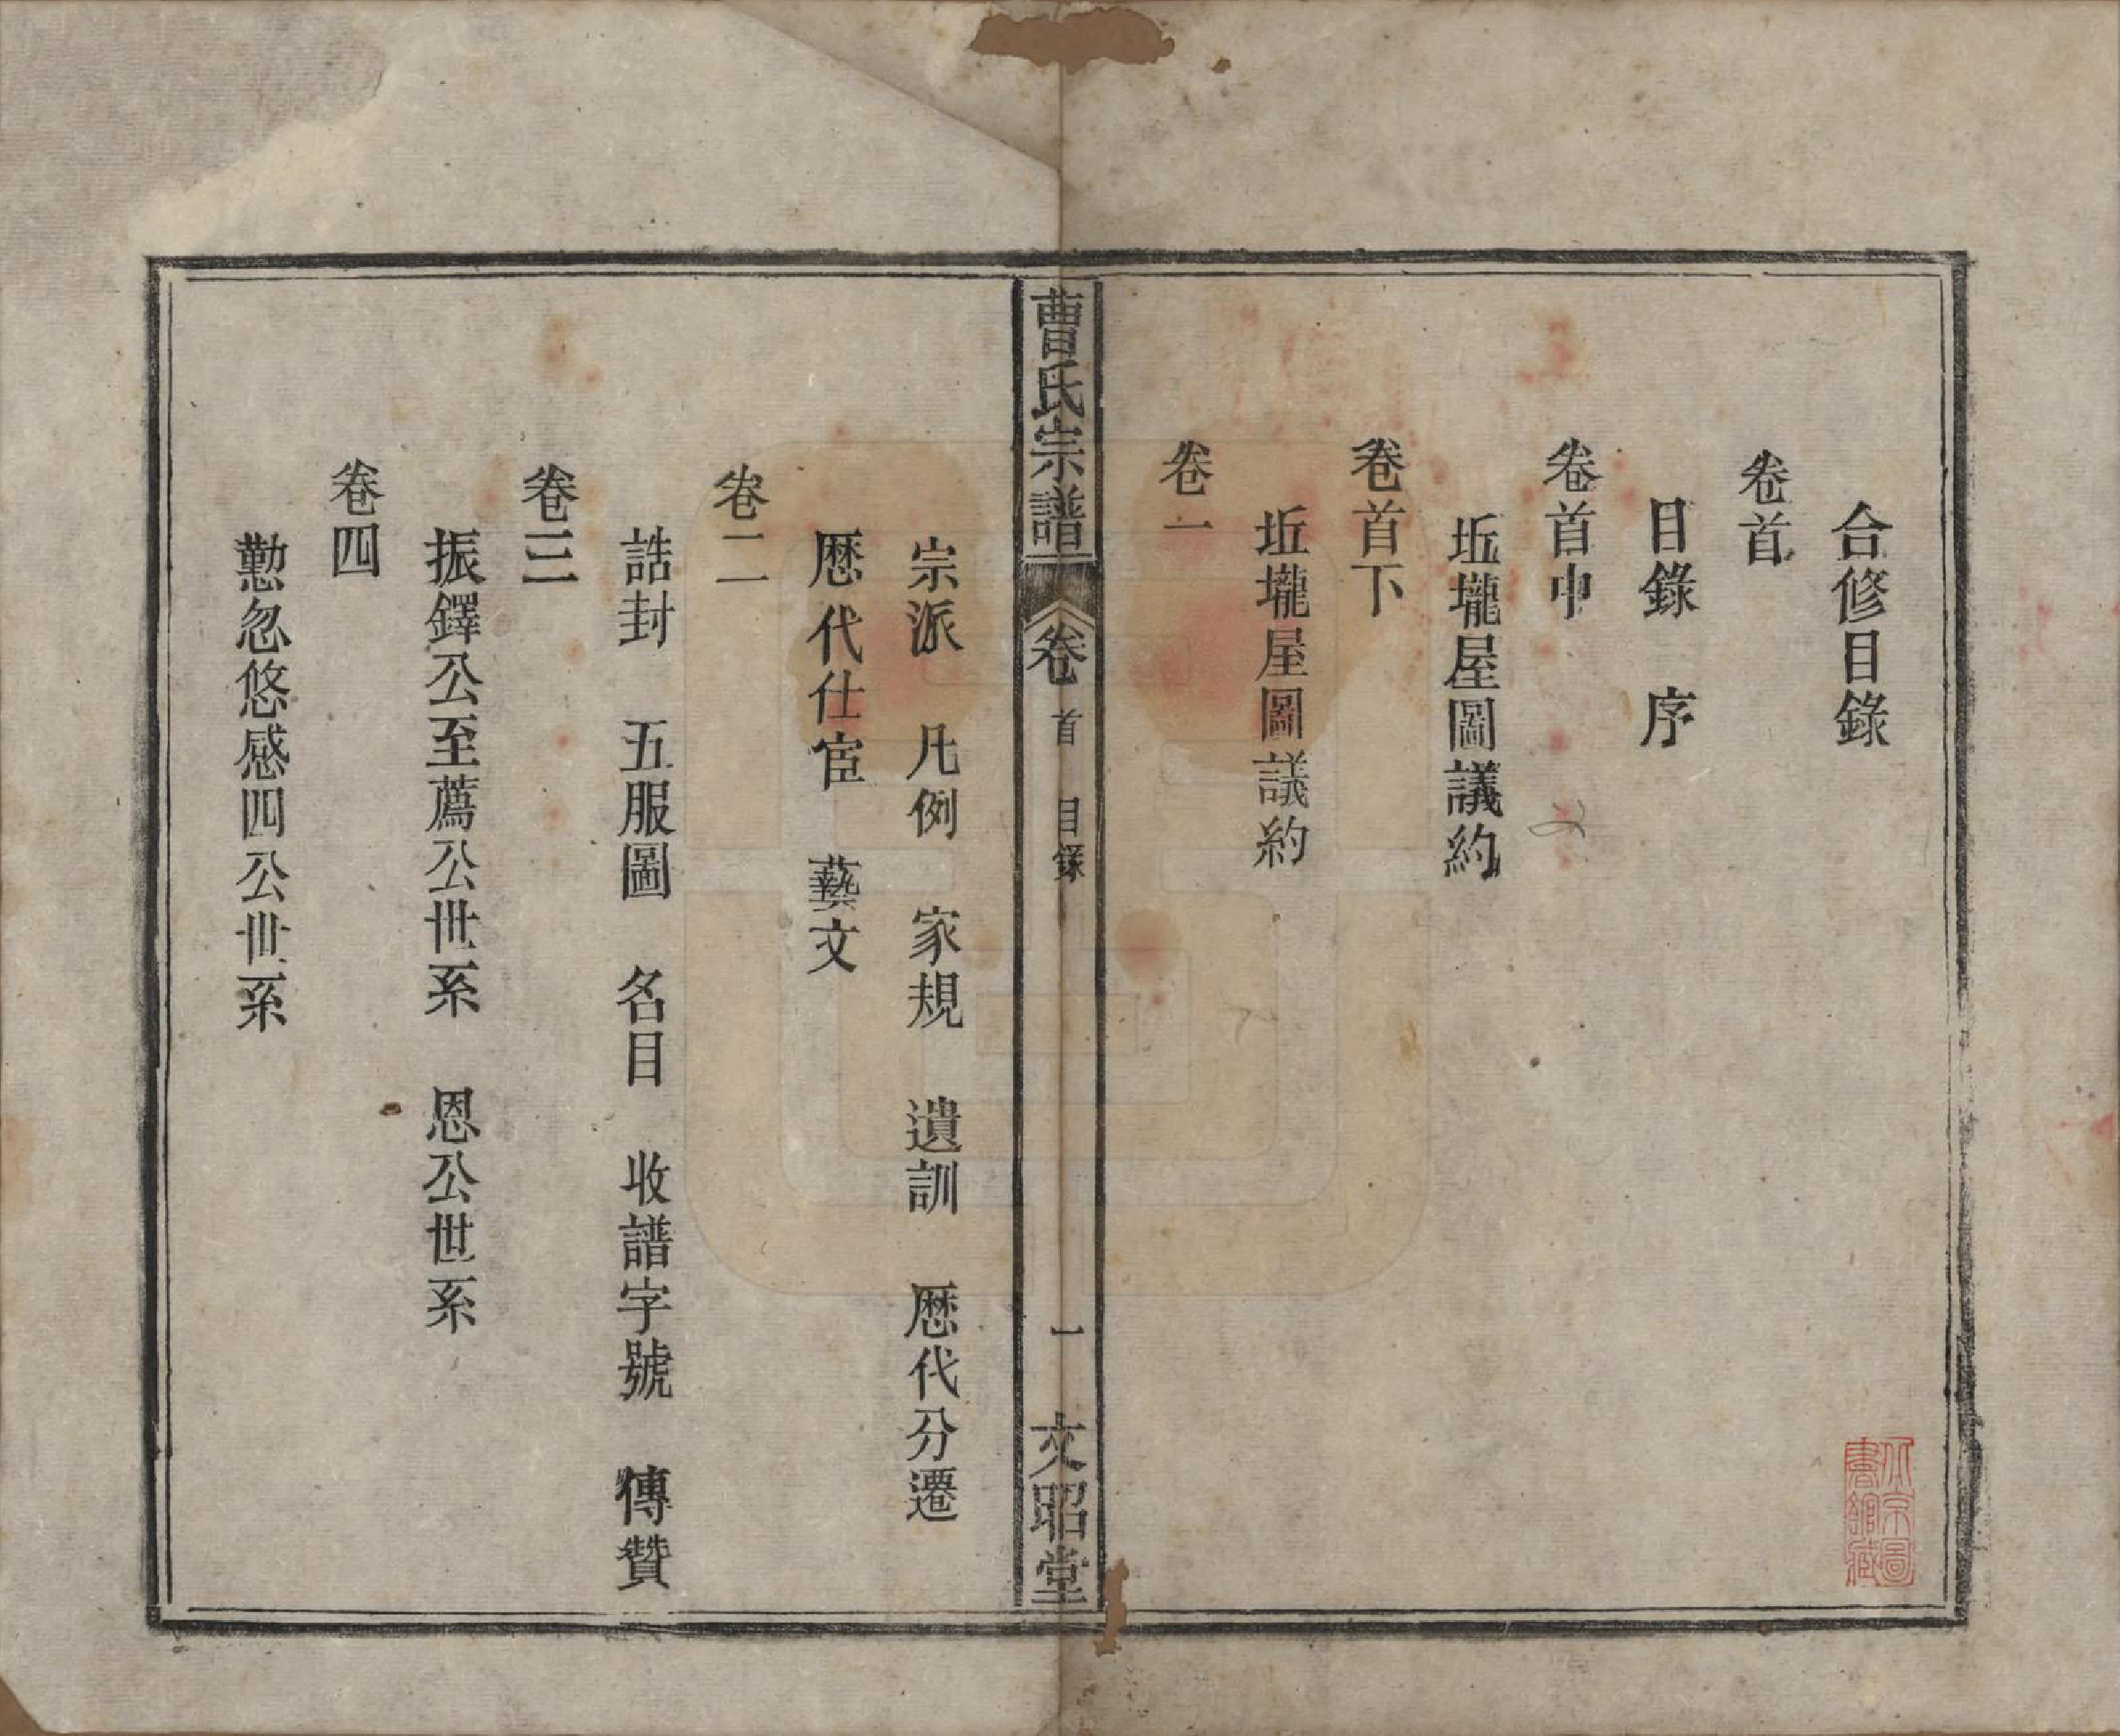 合修目錄
卷首
目錄　序
卷首中
坵壠屋圖議約
卷首下
坵壠屋圖議約
卷一
曹氏宗譜　卷首　目錄　一　文昭堂
宗派　凡例　家規　遺訓　歷代分遷
歷代仕宦　藝文
卷二
誥封　五服圖　名目　收譜字號　傳贊
卷三
振鐸公至薦公世系　恩公世系
卷四
懃忽悠感四公世系
北京圖
書館藏